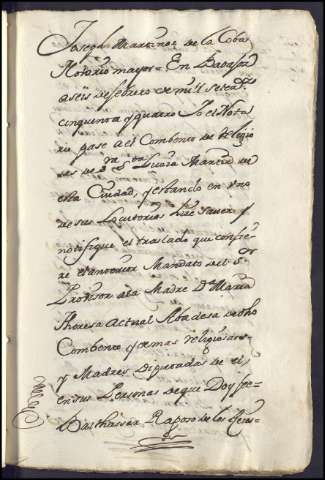 Joseph Martinez de la Coba
Notario mayor = En Badajoz
a seis de febrero de mill setez.os
cinquenta y quatro Yo el Nota
rio pase a el Combento de Religio
sas de S.ta Lucia Martir de
esta Ciudad, y estando en uno
de sus Locutorios hize saver y
notifique el traslado que confie
re el anterior Mandato del S.or
Provisor a la Madre D.a Maria
Theresa actual Abadesa de dho
Combento y demas religiosas
y Madres Diputadas de el
en sus Personas de que Doy fee =
Balthasar Raposo de los